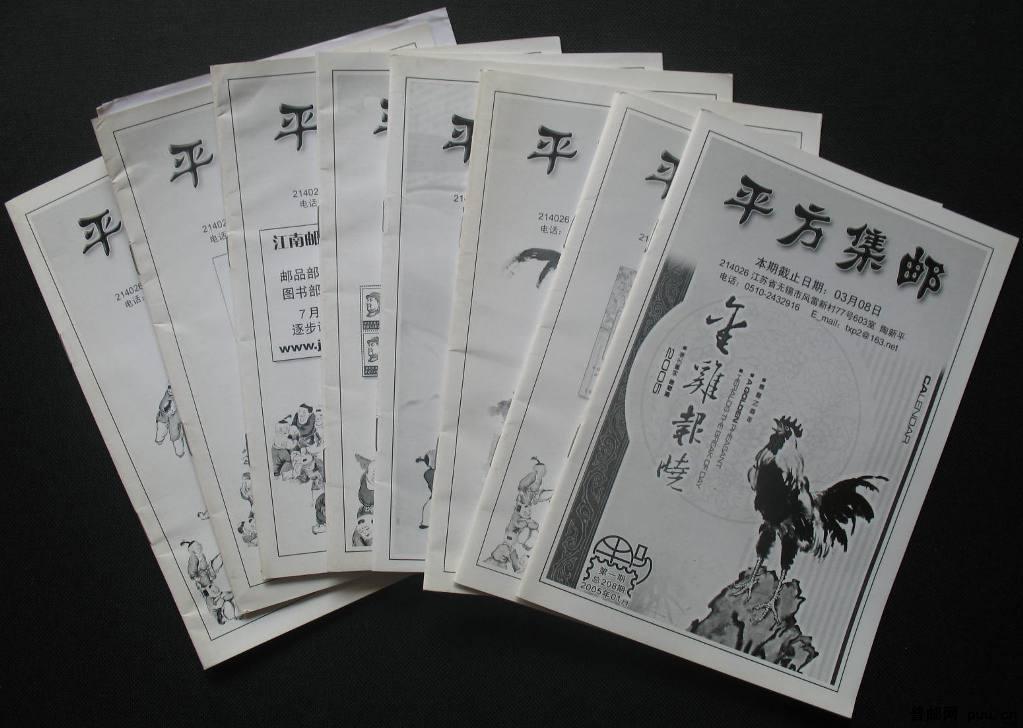 平
214026
电话:
平
21402
电话
平
21402
电话
江南邮
邮品部
图书部
7月
逐步
www.j
平
21
平
214026
电话:
平
214
电
平方集邮
本期截止日期：03月08日
214026 江苏省无锡市风雷新村77号603室 陶新平
电话：0510-2432916 E_mail：txp2@163.net
金雞報曉
2005
A GOLDEN PHEASANT
HERALDS THE BREAK OF DAY
CALENDAR
第一期
总208期
2005年01月
普邮网 puu.cn